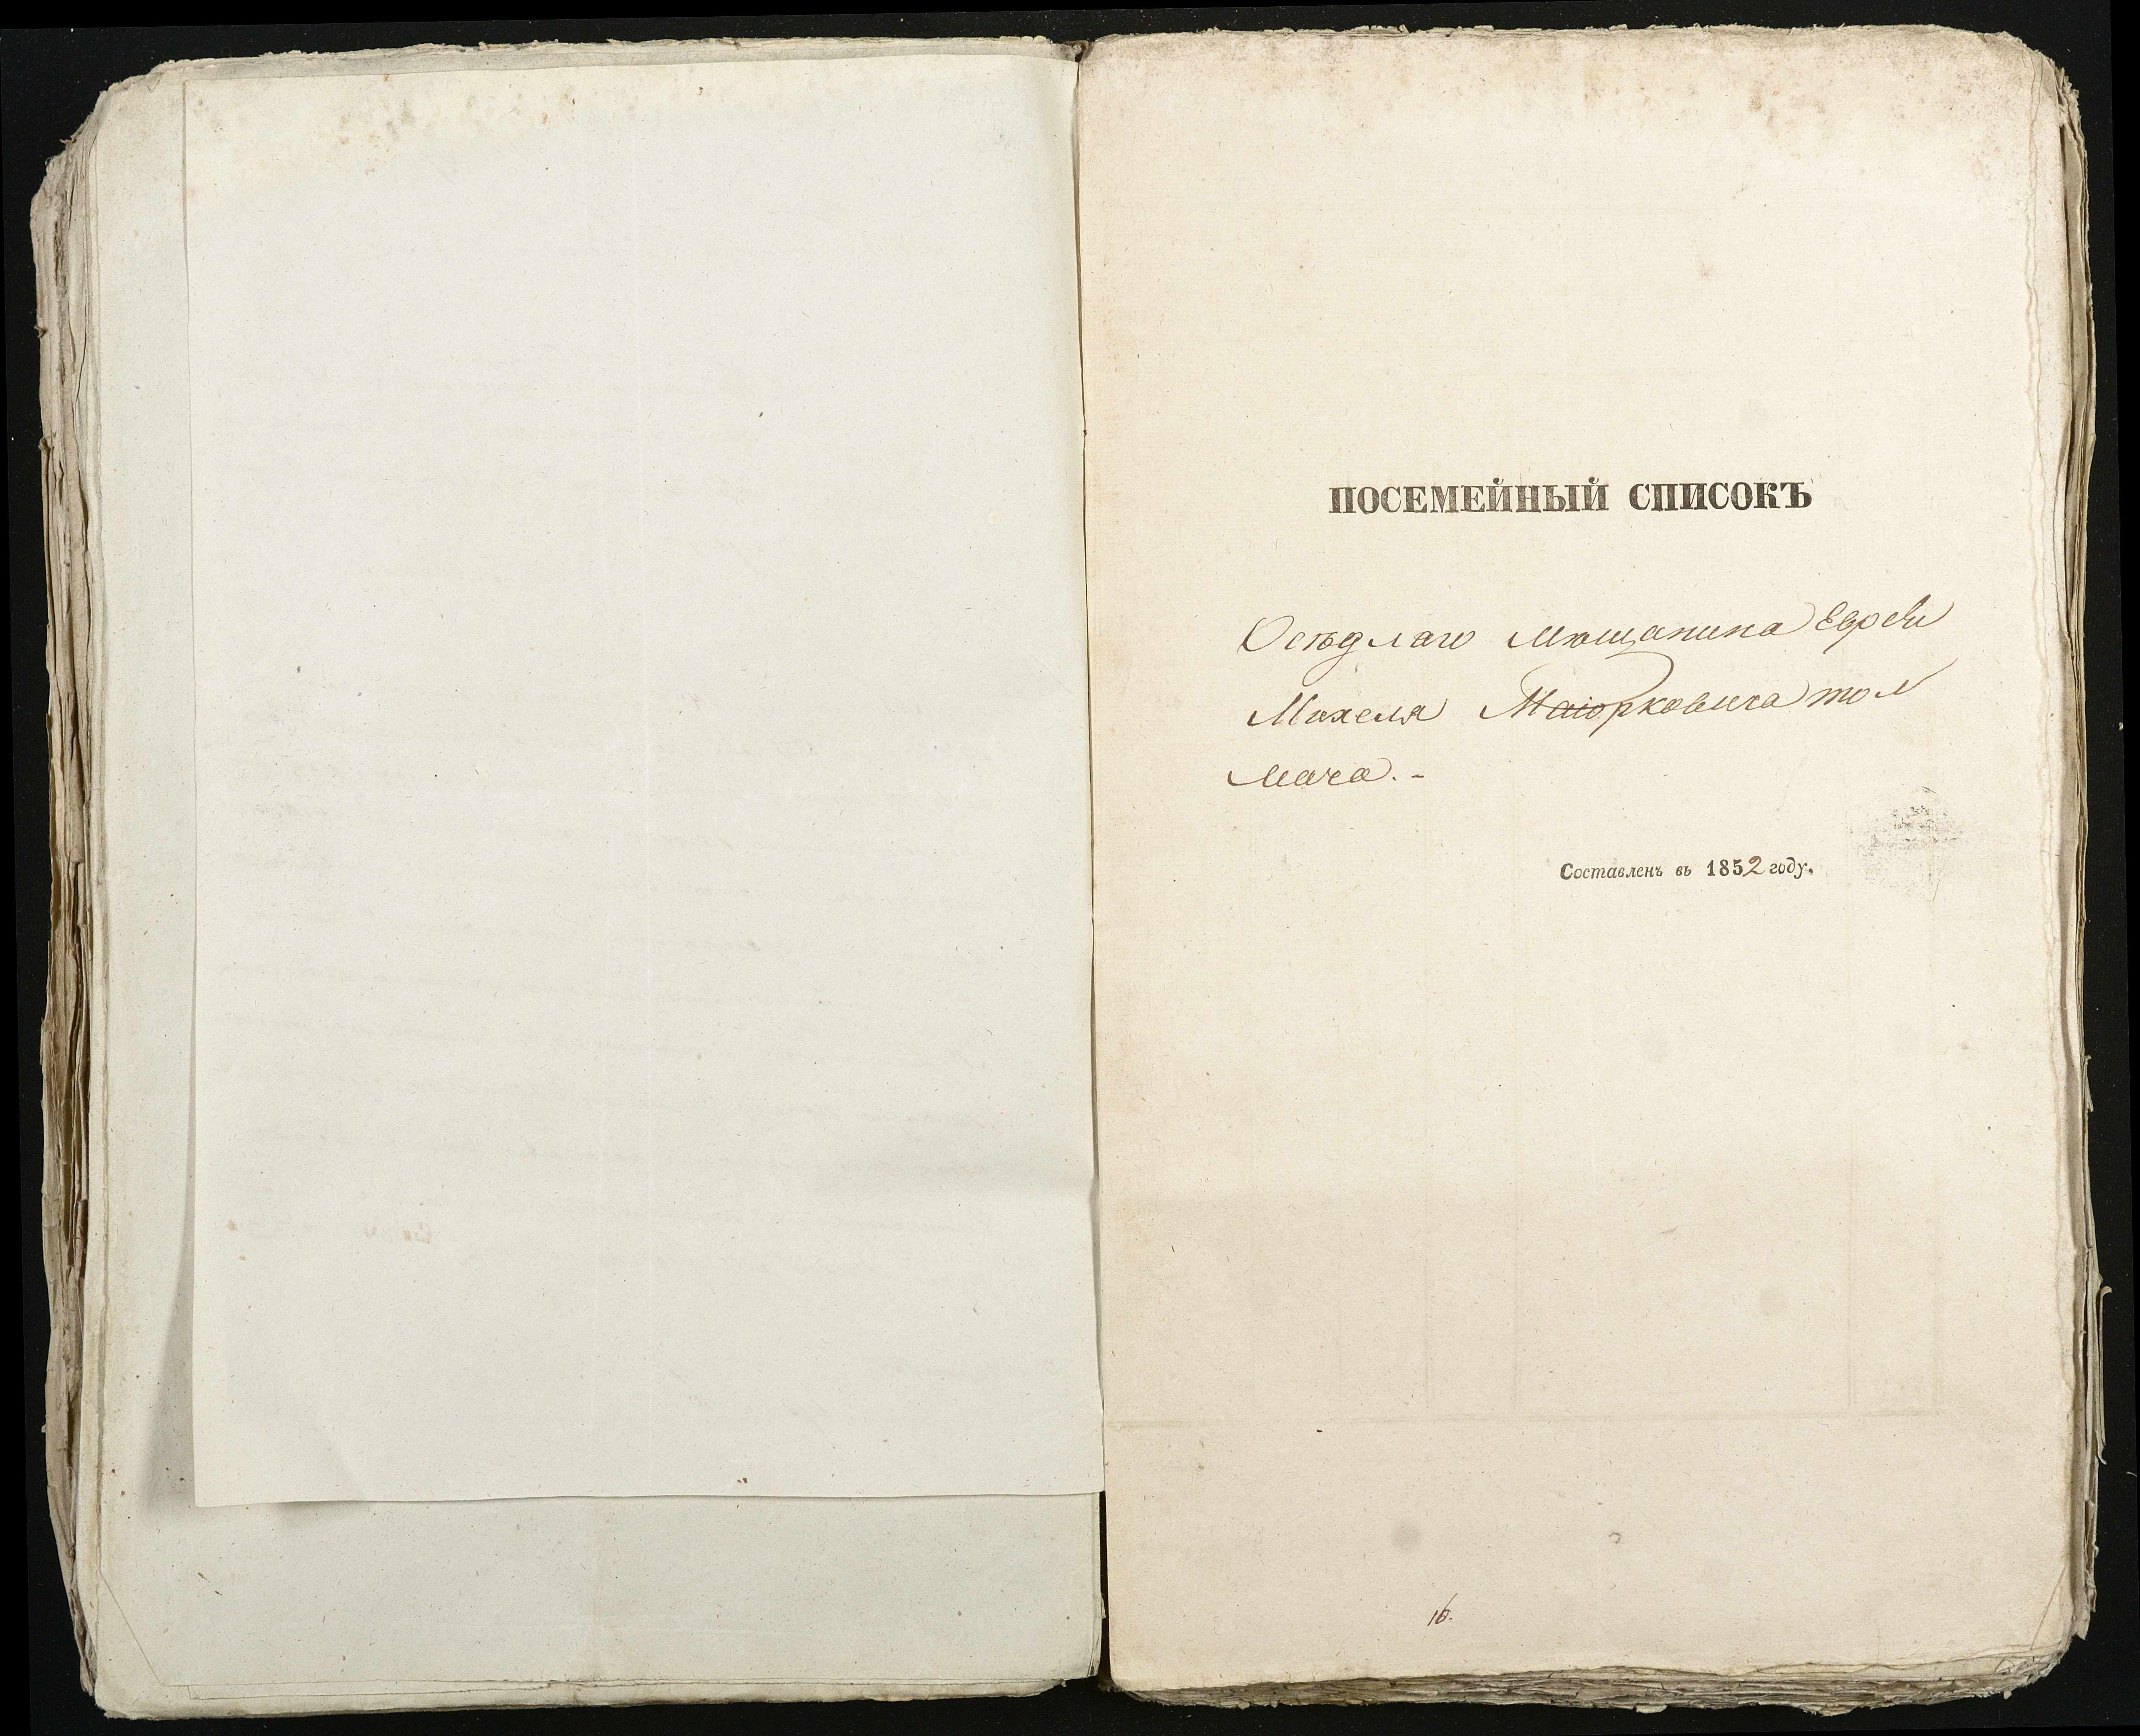 ПОСЕМЕЙНЫЙ СПИСОКЪ
Осѣдлаго мѣщанина Еврея
Михеля Маіорковича тол
мача. -
Составленъ въ 1852 году.
16.